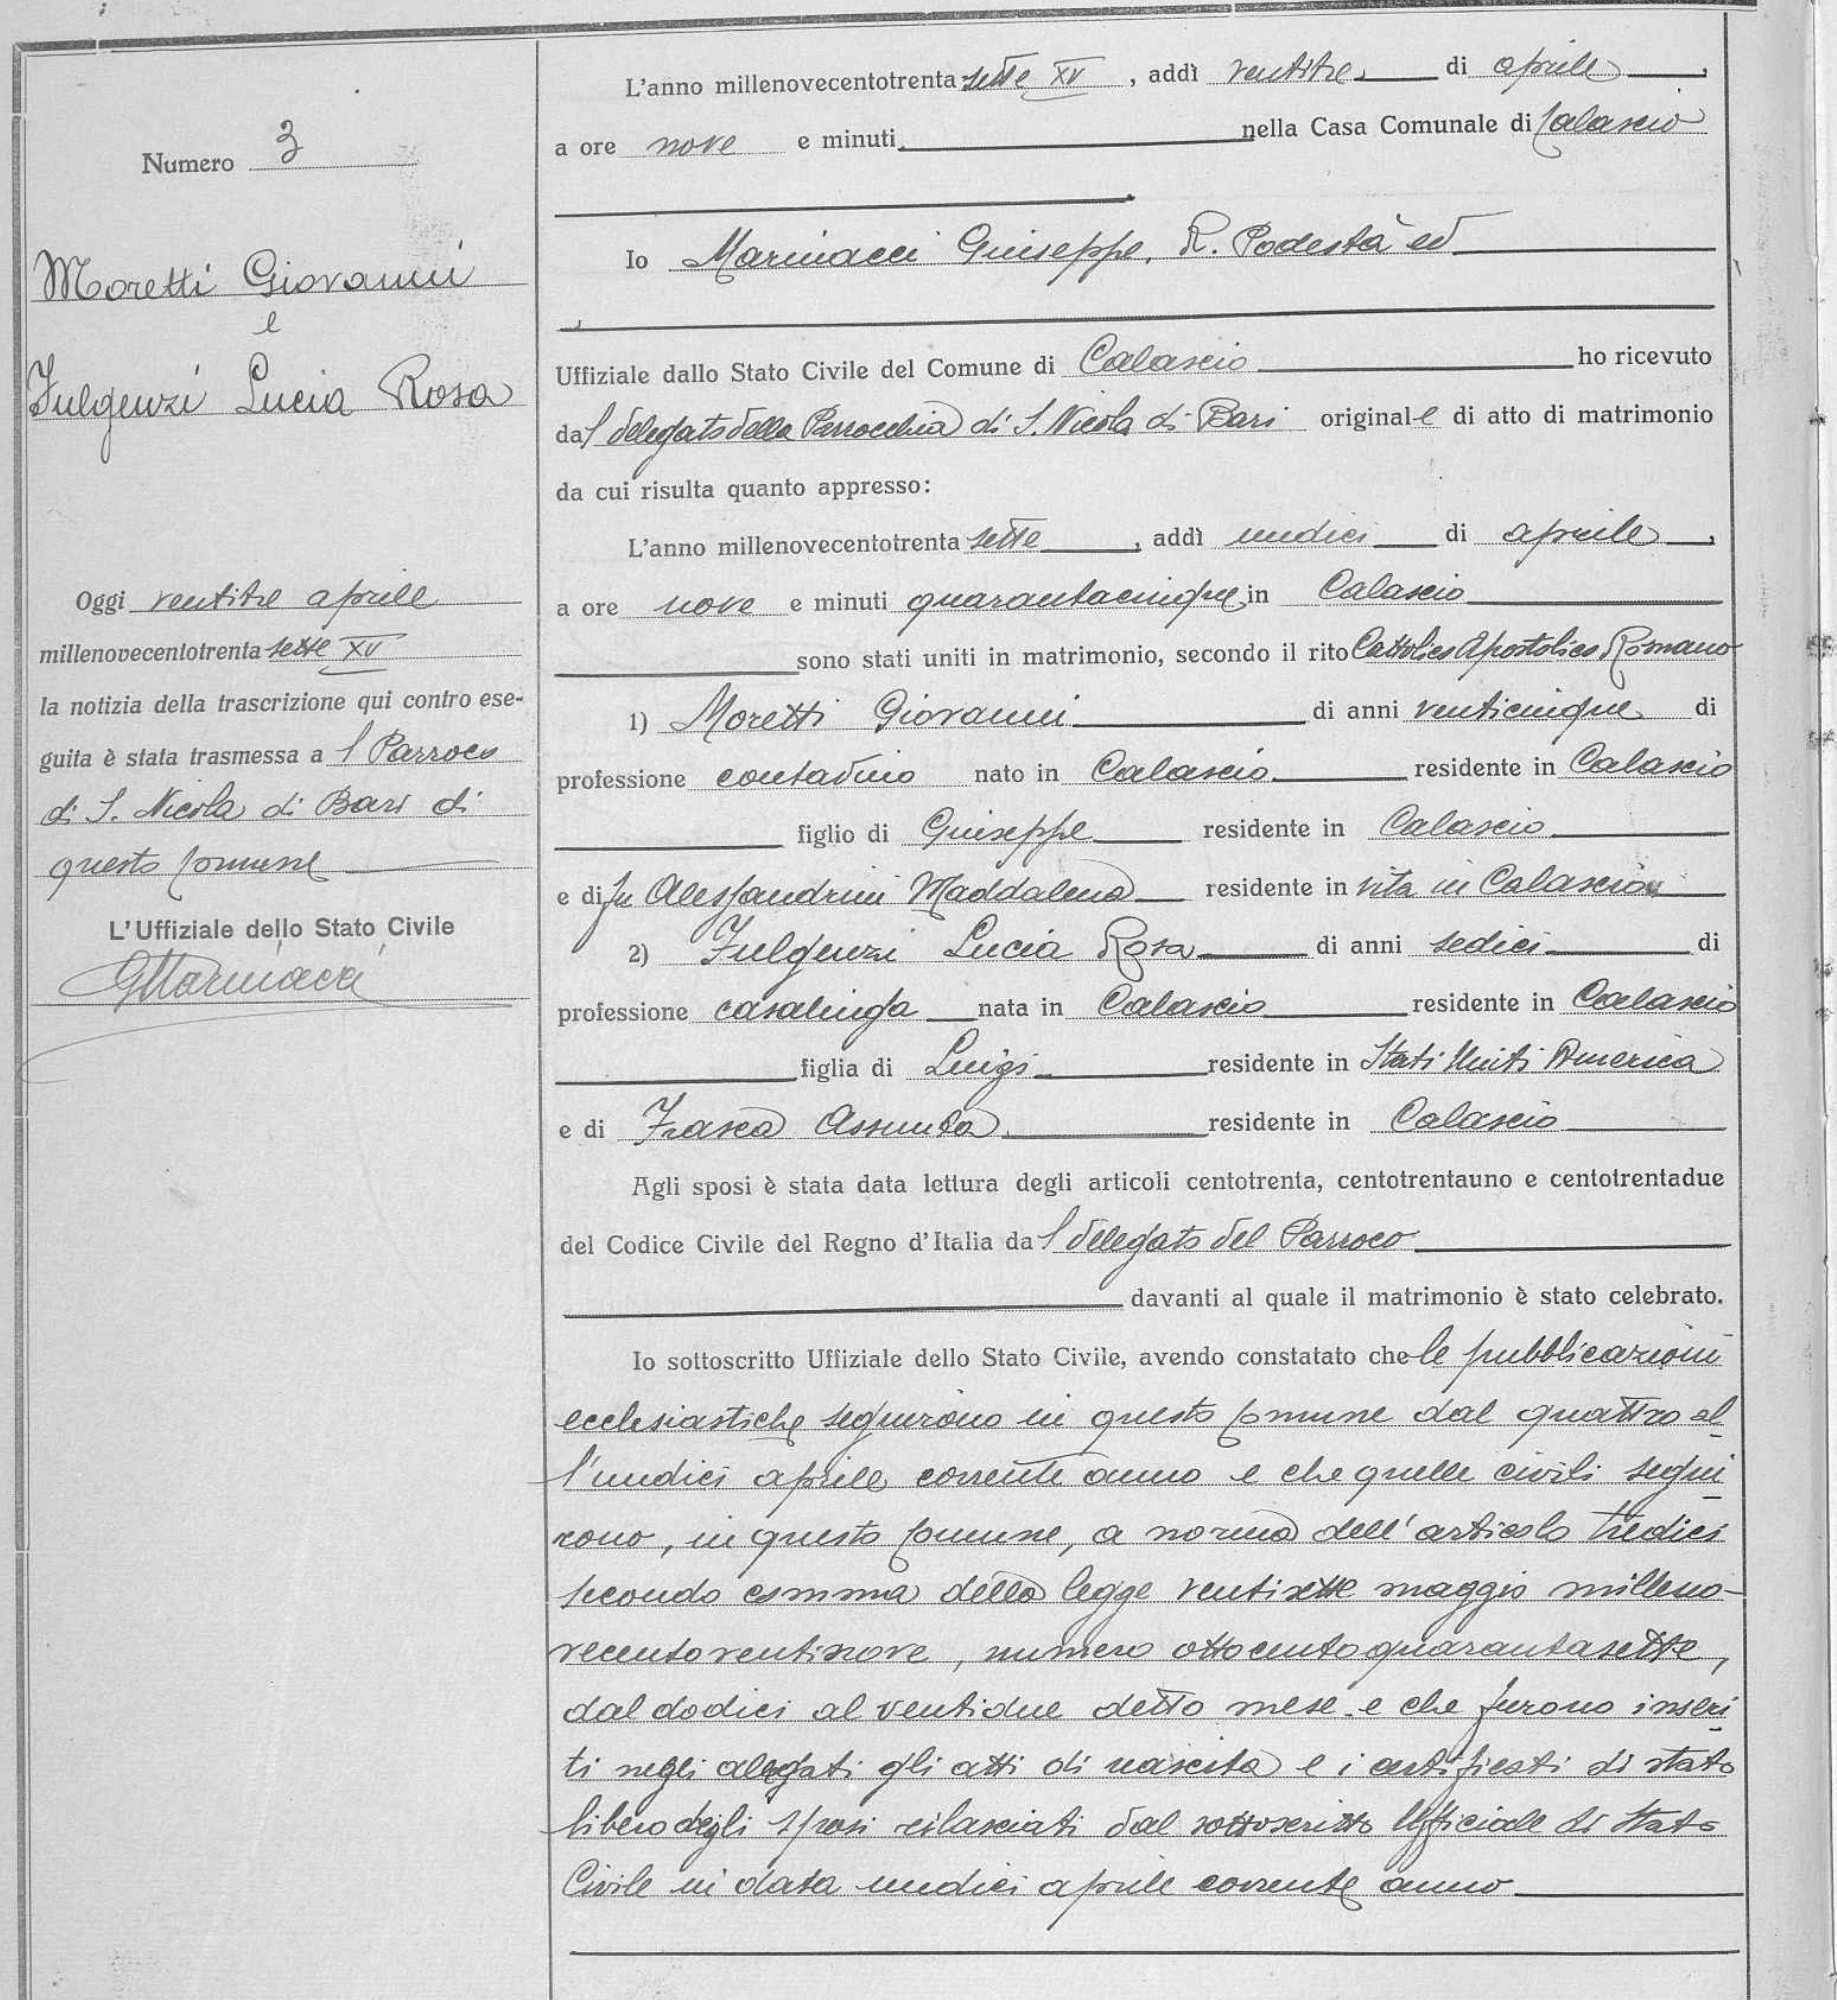 Numero 3
Moretti Giovanni
e
Fulgenzi Lucia Rosa
Oggi ventitre aprile
millenovecentotrenta sette XV
la notizia della trascrizione qui contro ese-
guita è stata trasmessa a l Parroco
di S. Nicola di Bari di
questo Comune
L'Uffiziale dello Stato Civile
GMarinacci
L'anno millenovecentotrenta sette XV, addì ventitre di aprile,
a ore nove e minuti nella Casa Comunale di Calascio
Io Marinacci Giuseppe, R. Podestà ed
Uffiziale dallo Stato Civile del Comune di Calascio ho ricevuto
dal delegato della Parrocchia di S. Nicola di Bari original e di atto di matrimonio
da cui risulta quanto appresso:
L'anno millenovecentotrenta sette, addì undici di aprile,
a ore nove e minuti quarantacinque in Calascio
sono stati uniti in matrimonio, secondo il rito Cattolico Apostolico Romano
1) Moretti Giovanni di anni venticinque di
professione contadino nato in Calascio residente in Calascio
figlio di Giuseppe residente in Calascio
e di fu Alessandrini Maddalena residente in vita in Calascio
2) Fulgenzi Lucia Rosa di anni sedici di
professione casalinga nata in Calascio residente in Calascio
figlia di Luigi residente in Stati Uniti America
e di Frasca Assunta residente in Calascio
Agli sposi è stata data lettura degli articoli centotrenta, centotrentauno e centotrentadue
del Codice Civile del Regno d'Italia da l delegato del Parroco
davanti al quale il matrimonio è stato celebrato.
Io sottoscritto Uffiziale dello Stato Civile, avendo constatato che le pubblicazioni
ecclesiastiche seguirono in questo Comune dal quattro al
l'undici aprile corrente anno e che quelle civili segui
rono, in questo Comune, a norma dell'articolo tredici
secondo comma della legge ventisette maggio milleno-
vecentoventinove, numero ottocentoquarantasette,
dal dodici al ventidue detto mese e che furono inseri
ti negli alegati gli atti di nascita e i certificati di stato
libero degli sposi rilasciati dal sottoscritto Ufficiale di Stato
Civile in data undici aprile corrente anno